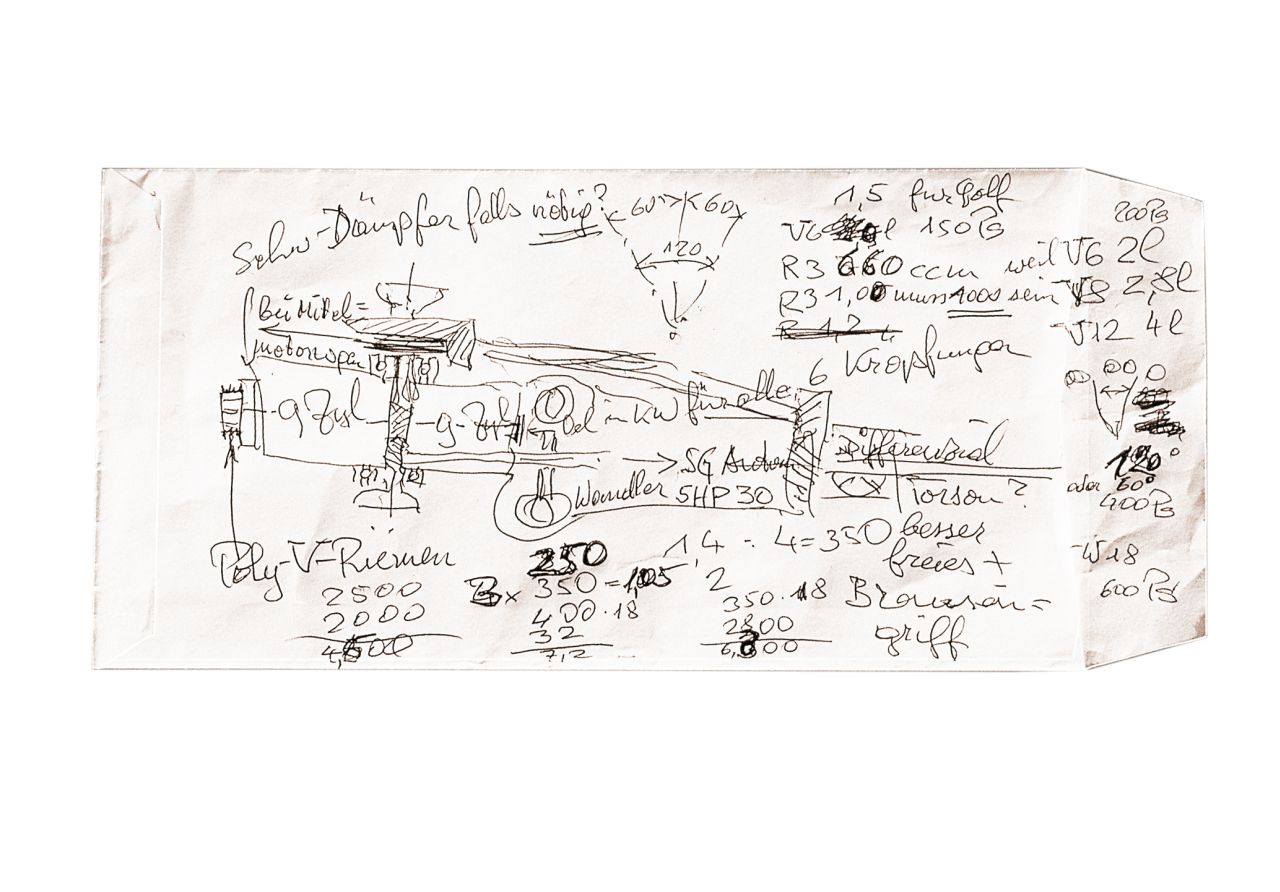 Schw-Dämpfer falls nötig?
60° 60
120
1,5 für Golf
V6 l 150 PS
R3 660 ccm weil V6 2l
R3 1,00 muss 1000 sein V8 2,8l
R 1,2
V12 4l
200 PS
6 Kröpfungen
bei Mittel=
motorwagen
9 Zyl - 9 Zyl
Oel in KW für alle
→ 5G Autom
Wandler 5HP30
Differenzial
Torson?
besser
freies +
Browson=
griff
60
120°
oder 60°
400 PS
W18
600 PS
Poly-V-Riemen
2500
2000
250
350 = 1,05
400 · 18
32
7,2
1,4 : 4 = 350
2
350 · 18
2800
6,300